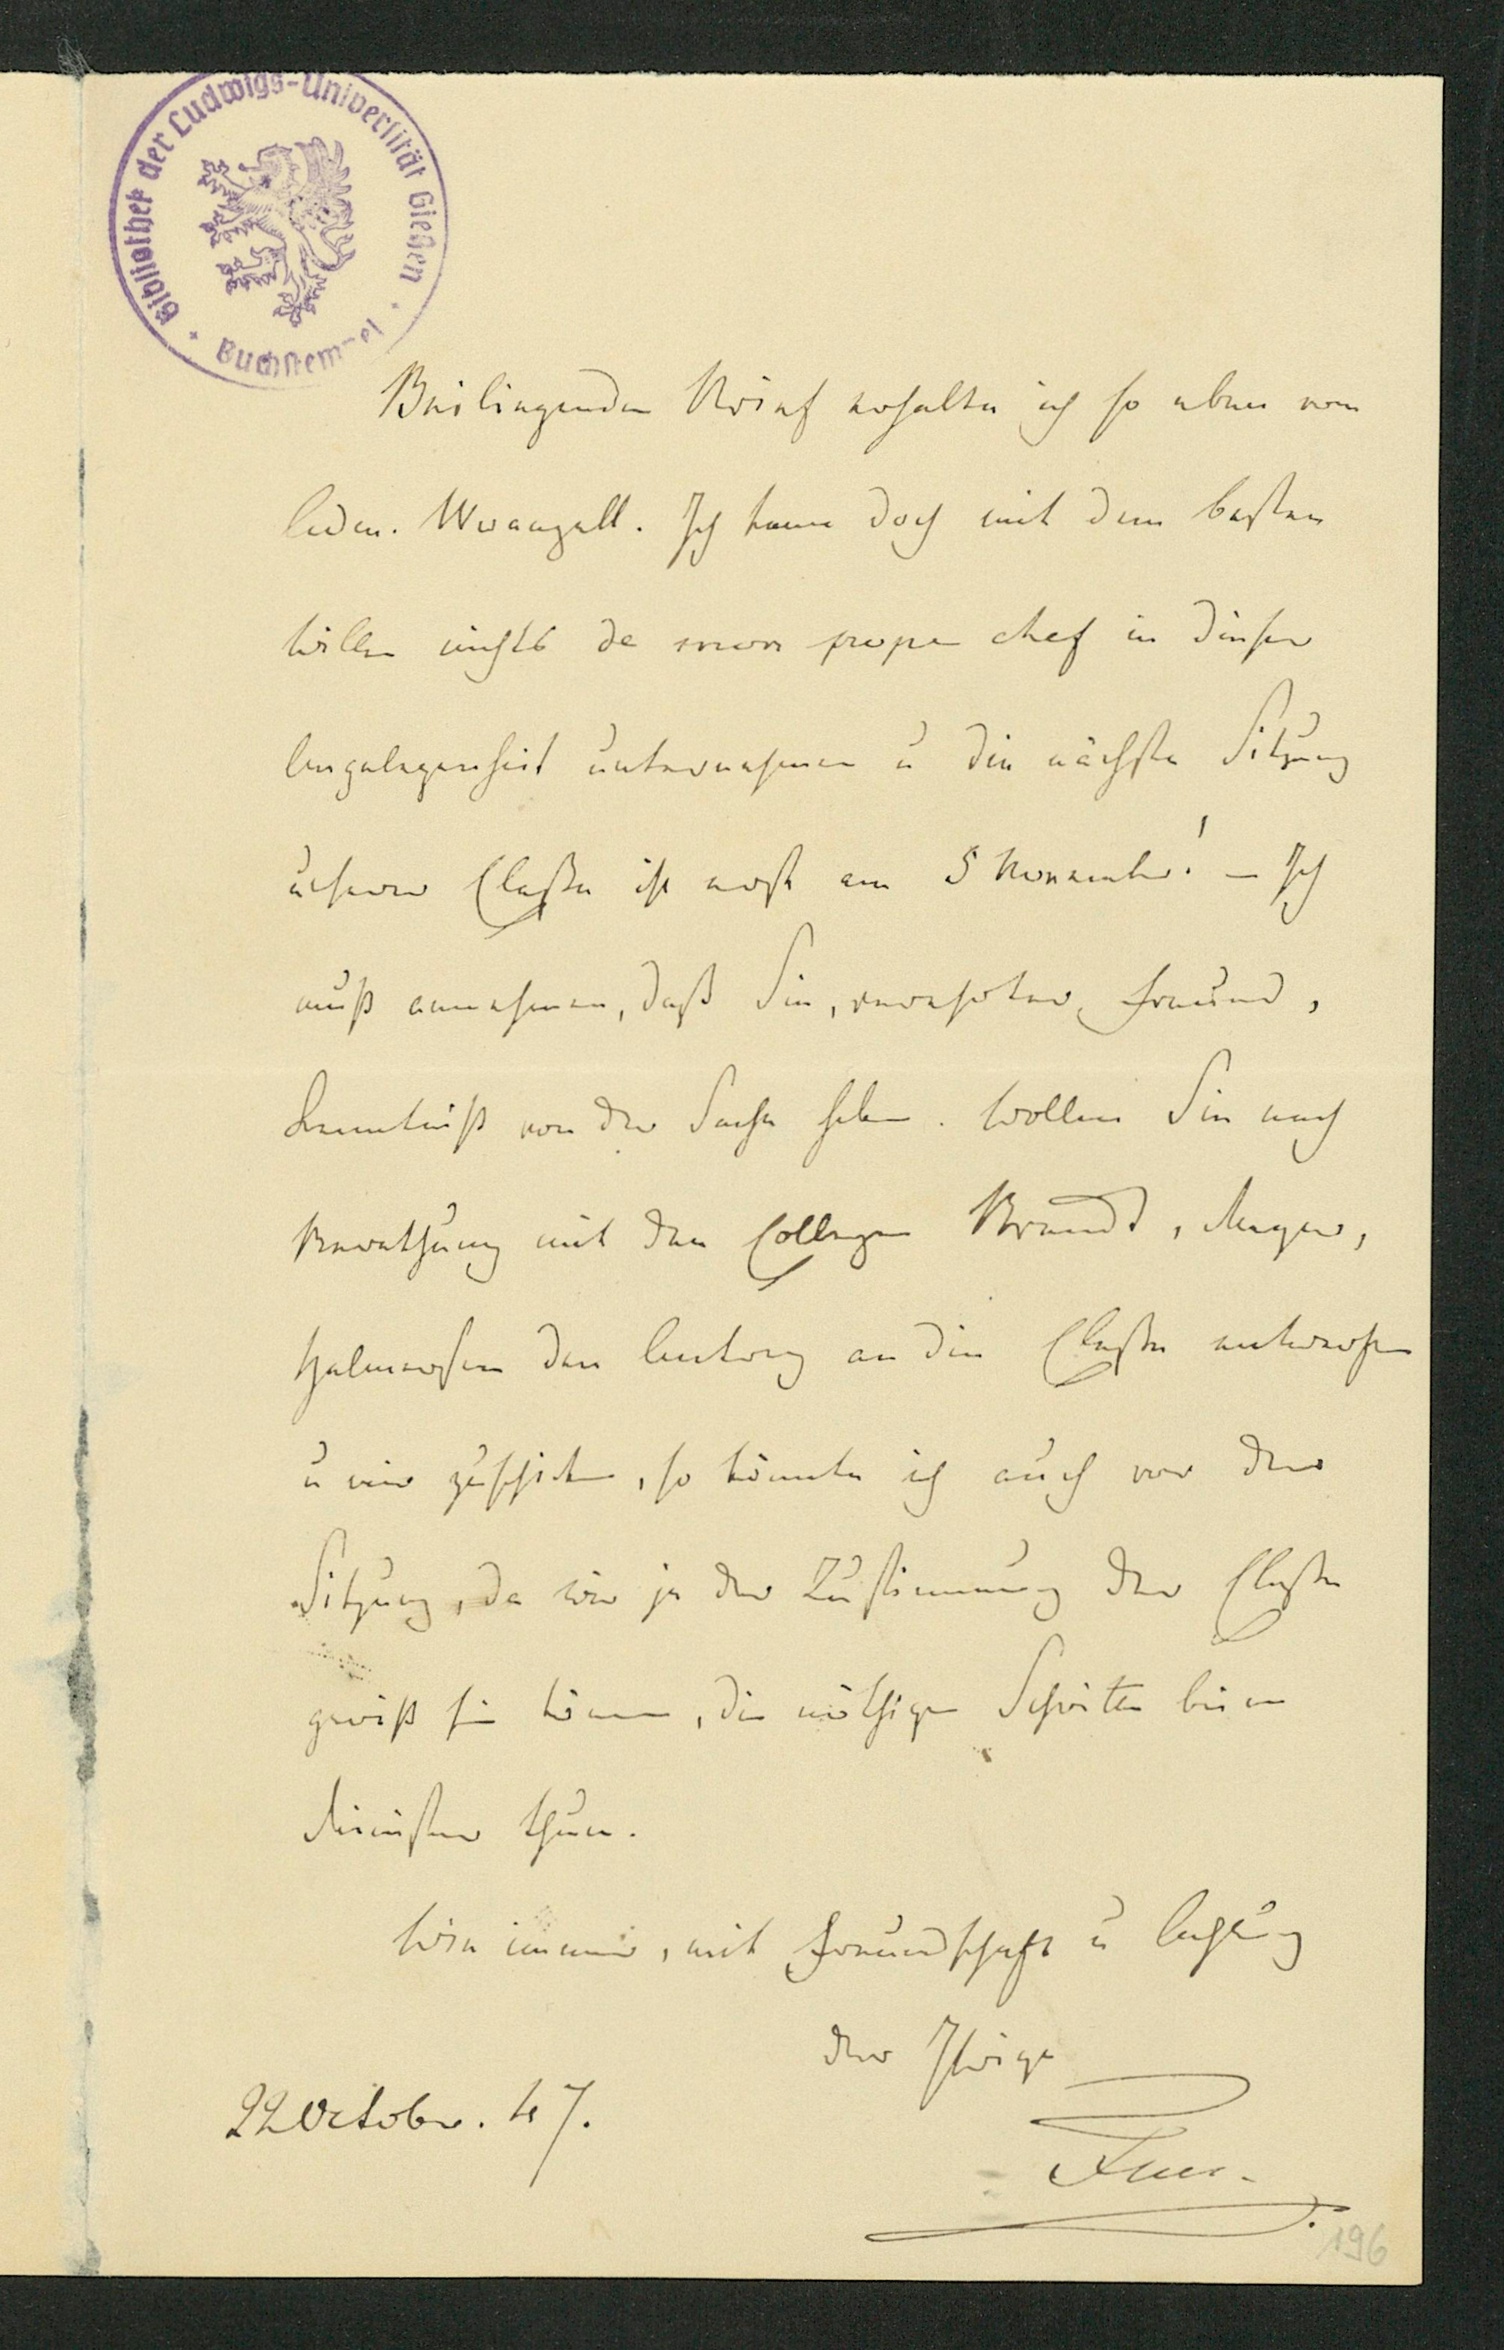 Bibliothek der Ludwigs-Universität Gießen
Buchstempel
Beiliegenden Brief erhalte ich so eben von
Wrangell. Ich kann doch mit dem besten
Willen nichts de mon propre chef in dieser
Angelegenheit unternehmen u die nächste Sitzung
unserer Classe ist erst am 5 November! – Ich
muß annehmen, daß Sie, verehrter Freund,
Kenntniß von der Sache haben. Wollen Sie nach
Berathung mit den Collegen Brandt, Meyer,
Helmersen den Antrag an die Classe entwerfen
u mir zuschicken, so könnte ich auch vor der
Sitzung, da wir ja der Zustimmung der Classe
gewiß sein können, die nöthigen Schritte beim
Minister thun.
Wie immer, mit Freundschaft u Achtung
der Ihrige
22 October. 47.
Fuss.
196